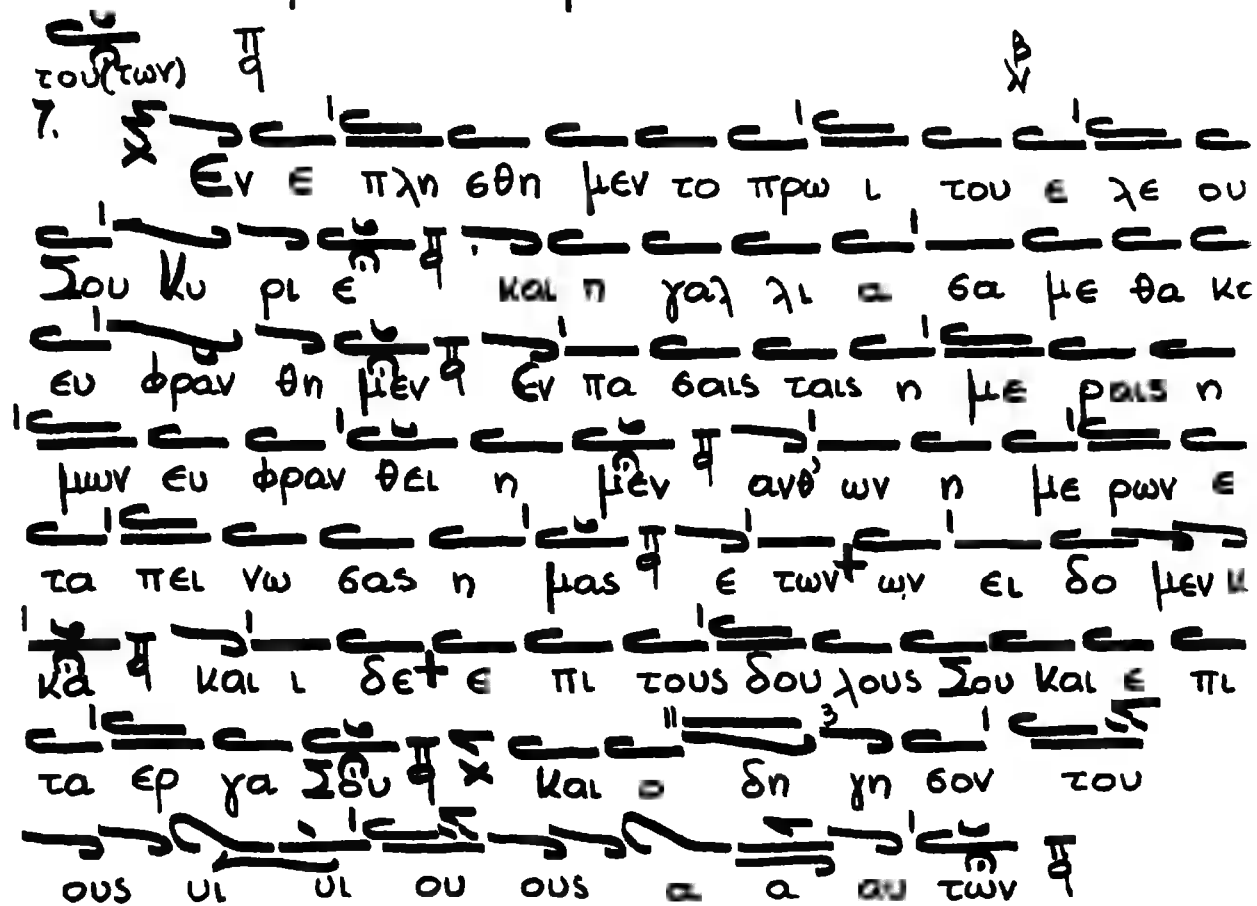 του(των)
7.
Εν ε πλη σθη μεν το πρω ι του ε λε ου
Σου Κυ ρι ε και η γαλ λι α σα με θα κα
ευ φραν θη μεν εν πα σαις ταις η με ραις η
μων ευ φραν θει η μεν ανθ' ων η με ρων ε
τα πει νω σας η μας ε των ων ει δο μεν κ
κα και ι δε ε πι τους δου λους Σου και ε πι
τα ερ γα Σου και ο δη γη σον του
ους υι υι ου ους α α αυ των